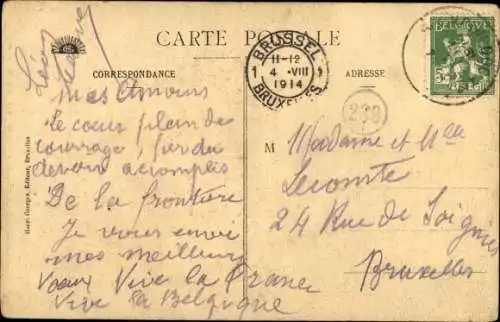 CARTE POSTALE
CORRESPONDANCE
ADRESSE
BRUSSEL
11-12
1 4 VIII 1
1914
BRUXELLES
BELGIQUE
230
Léon
Mes Amours
le cœur plein de
courage, fier du
devoir accomplis
De la frontiere
Je vous envoi
mes meilleurs
Voeux Vive la France
Vive la Belgique
M Madame et Mlle
Lecomte
24 Rue de Soignies
Bruxelles